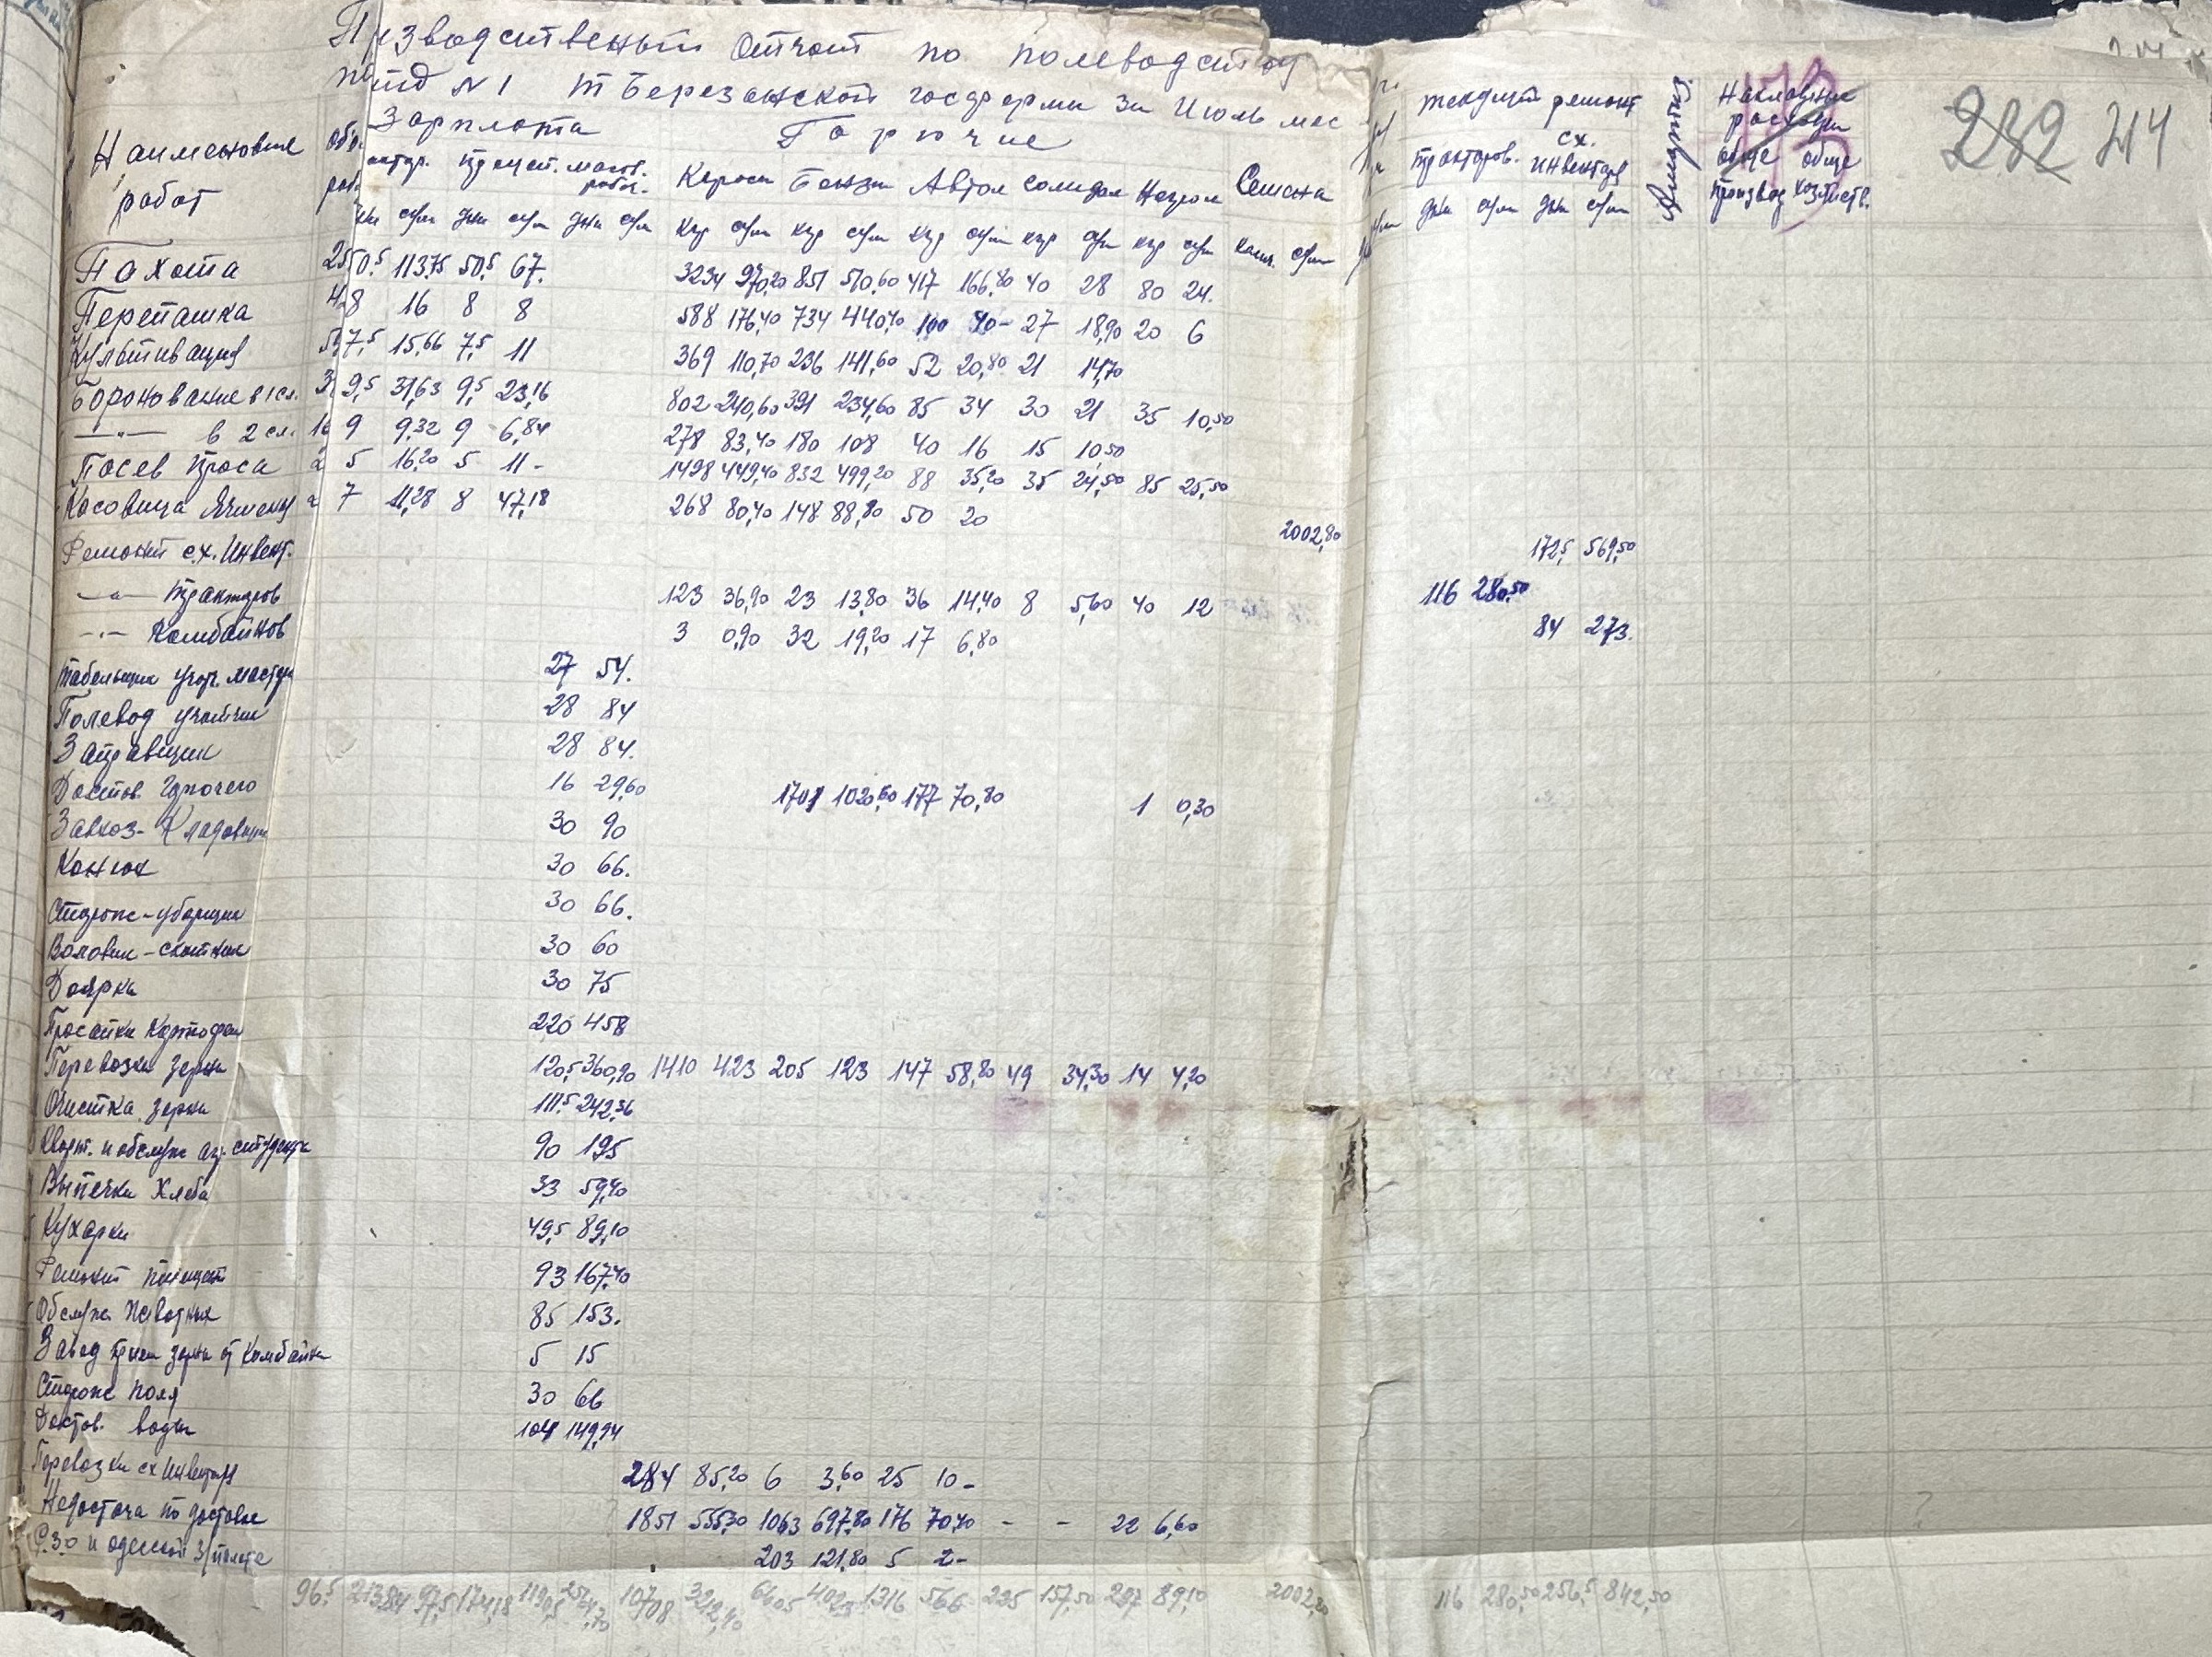 Призводственный Отчот по полеводству
отд №1 т Березанской госфермы за Июль мес
Наименование работ
Зарплата
Горючие
Семена
текущий ремонт
Накладные расходы
232 214
трактор. прицеп. масов. работ.
Кероси Бензин Автол солидол Нигрол
тракторов. сх. инвентаря
Амортиз.
обще производ обще хозяйств.
дни сум дни сум дни сум кгр сум кгр сум кгр сум кгр сум кгр сум колич. сум
дни сум дни сум
Пахота 50,5 113,75 50,5 67. 3234 970,20 851 510,60 417 166,80 40 28 80 24.
Перепашка 8 16 8 8 588 176,40 734 440,40 100 40- 27 18,90 20 6
Культивация 7,5 15,66 7,5 11 369 110,70 236 141,60 52 20,80 21 14,70
Боронование в 1 сл. 9,5 31,63 9,5 23,16 802 240,60 391 234,60 85 34 30 21 35 10,50
—"— в 2 сл. 9 9,32 9 6,84 278 83,40 180 108 40 16 15 10,50
Посев проса 5 16,20 5 11- 1498 449,40 832 499,20 88 35,20 35 24,50 85 25,50
Косовица Ячменя 7 11,28 8 47,18 268 80,40 148 88,80 50 20 2002,80
Ремонт с.х. Инвент. 172,5 569,50
—"— тракторов 123 36,90 23 13,80 36 14,40 8 5,60 40 12 116 280,50
—"— Комбайнов 3 0,90 32 19,20 17 6,80 84 273.
табельщик 27 54.
Полевод учотчик 28 84
Заправщик 28 84.
Достов. Горючего 16 29,60 1701 1020,60 177 70,80 1 0,30
Завхоз-Кладовщик 30 90
Конюх 30 66.
Сторож-уборщик 30 66.
Воловик-скотник 30 60
Доярка 30 75
Просапка Картофеля 220 458
Перевозка зерна 120,5 360,90 1410 423 205 123 147 58,80 49 34,30 14 4,20
Очистка зерна 111,5 242,36
90 195
Выпечка Хлеба 33 59,40
Кухарки 49,5 89,10
Ремонт помещен 93 167,40
Обслуж. Животных 85 153.
Завед прием зерна от Комбайна 5 15
Сторож поля 30 66
Достов. воды 104 149,94
Перевозка сх Инвентаря 284 85,20 6 3,60 25 10-
Недостача по доставке 1851 555,30 1063 697,80 176 70,40 - - 22 6,60
203 121,80 5 2-
96,5 213,84 97,5 174,18 1190,5 2564,70 10708 3212,40 6605 1316 566 225 157,50 297 89,10 2002,80 116 280,50 256,5 842,50